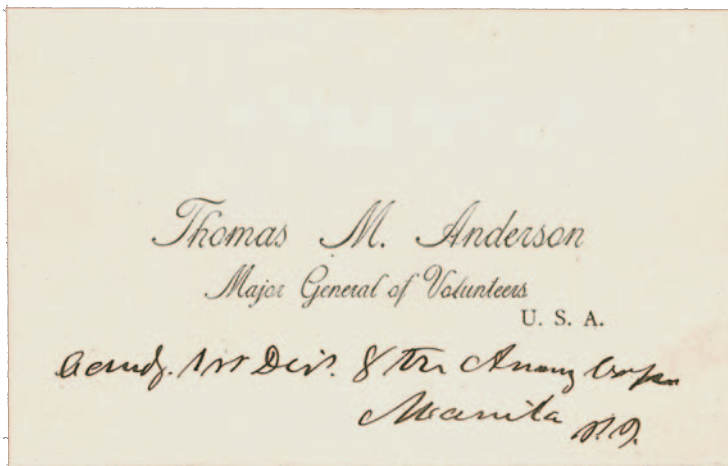 Thomas M. Anderson
Major General of Volunteers
U. S. A.
Comdg. 1st Div. 8th Army Corps
Manila P.I.